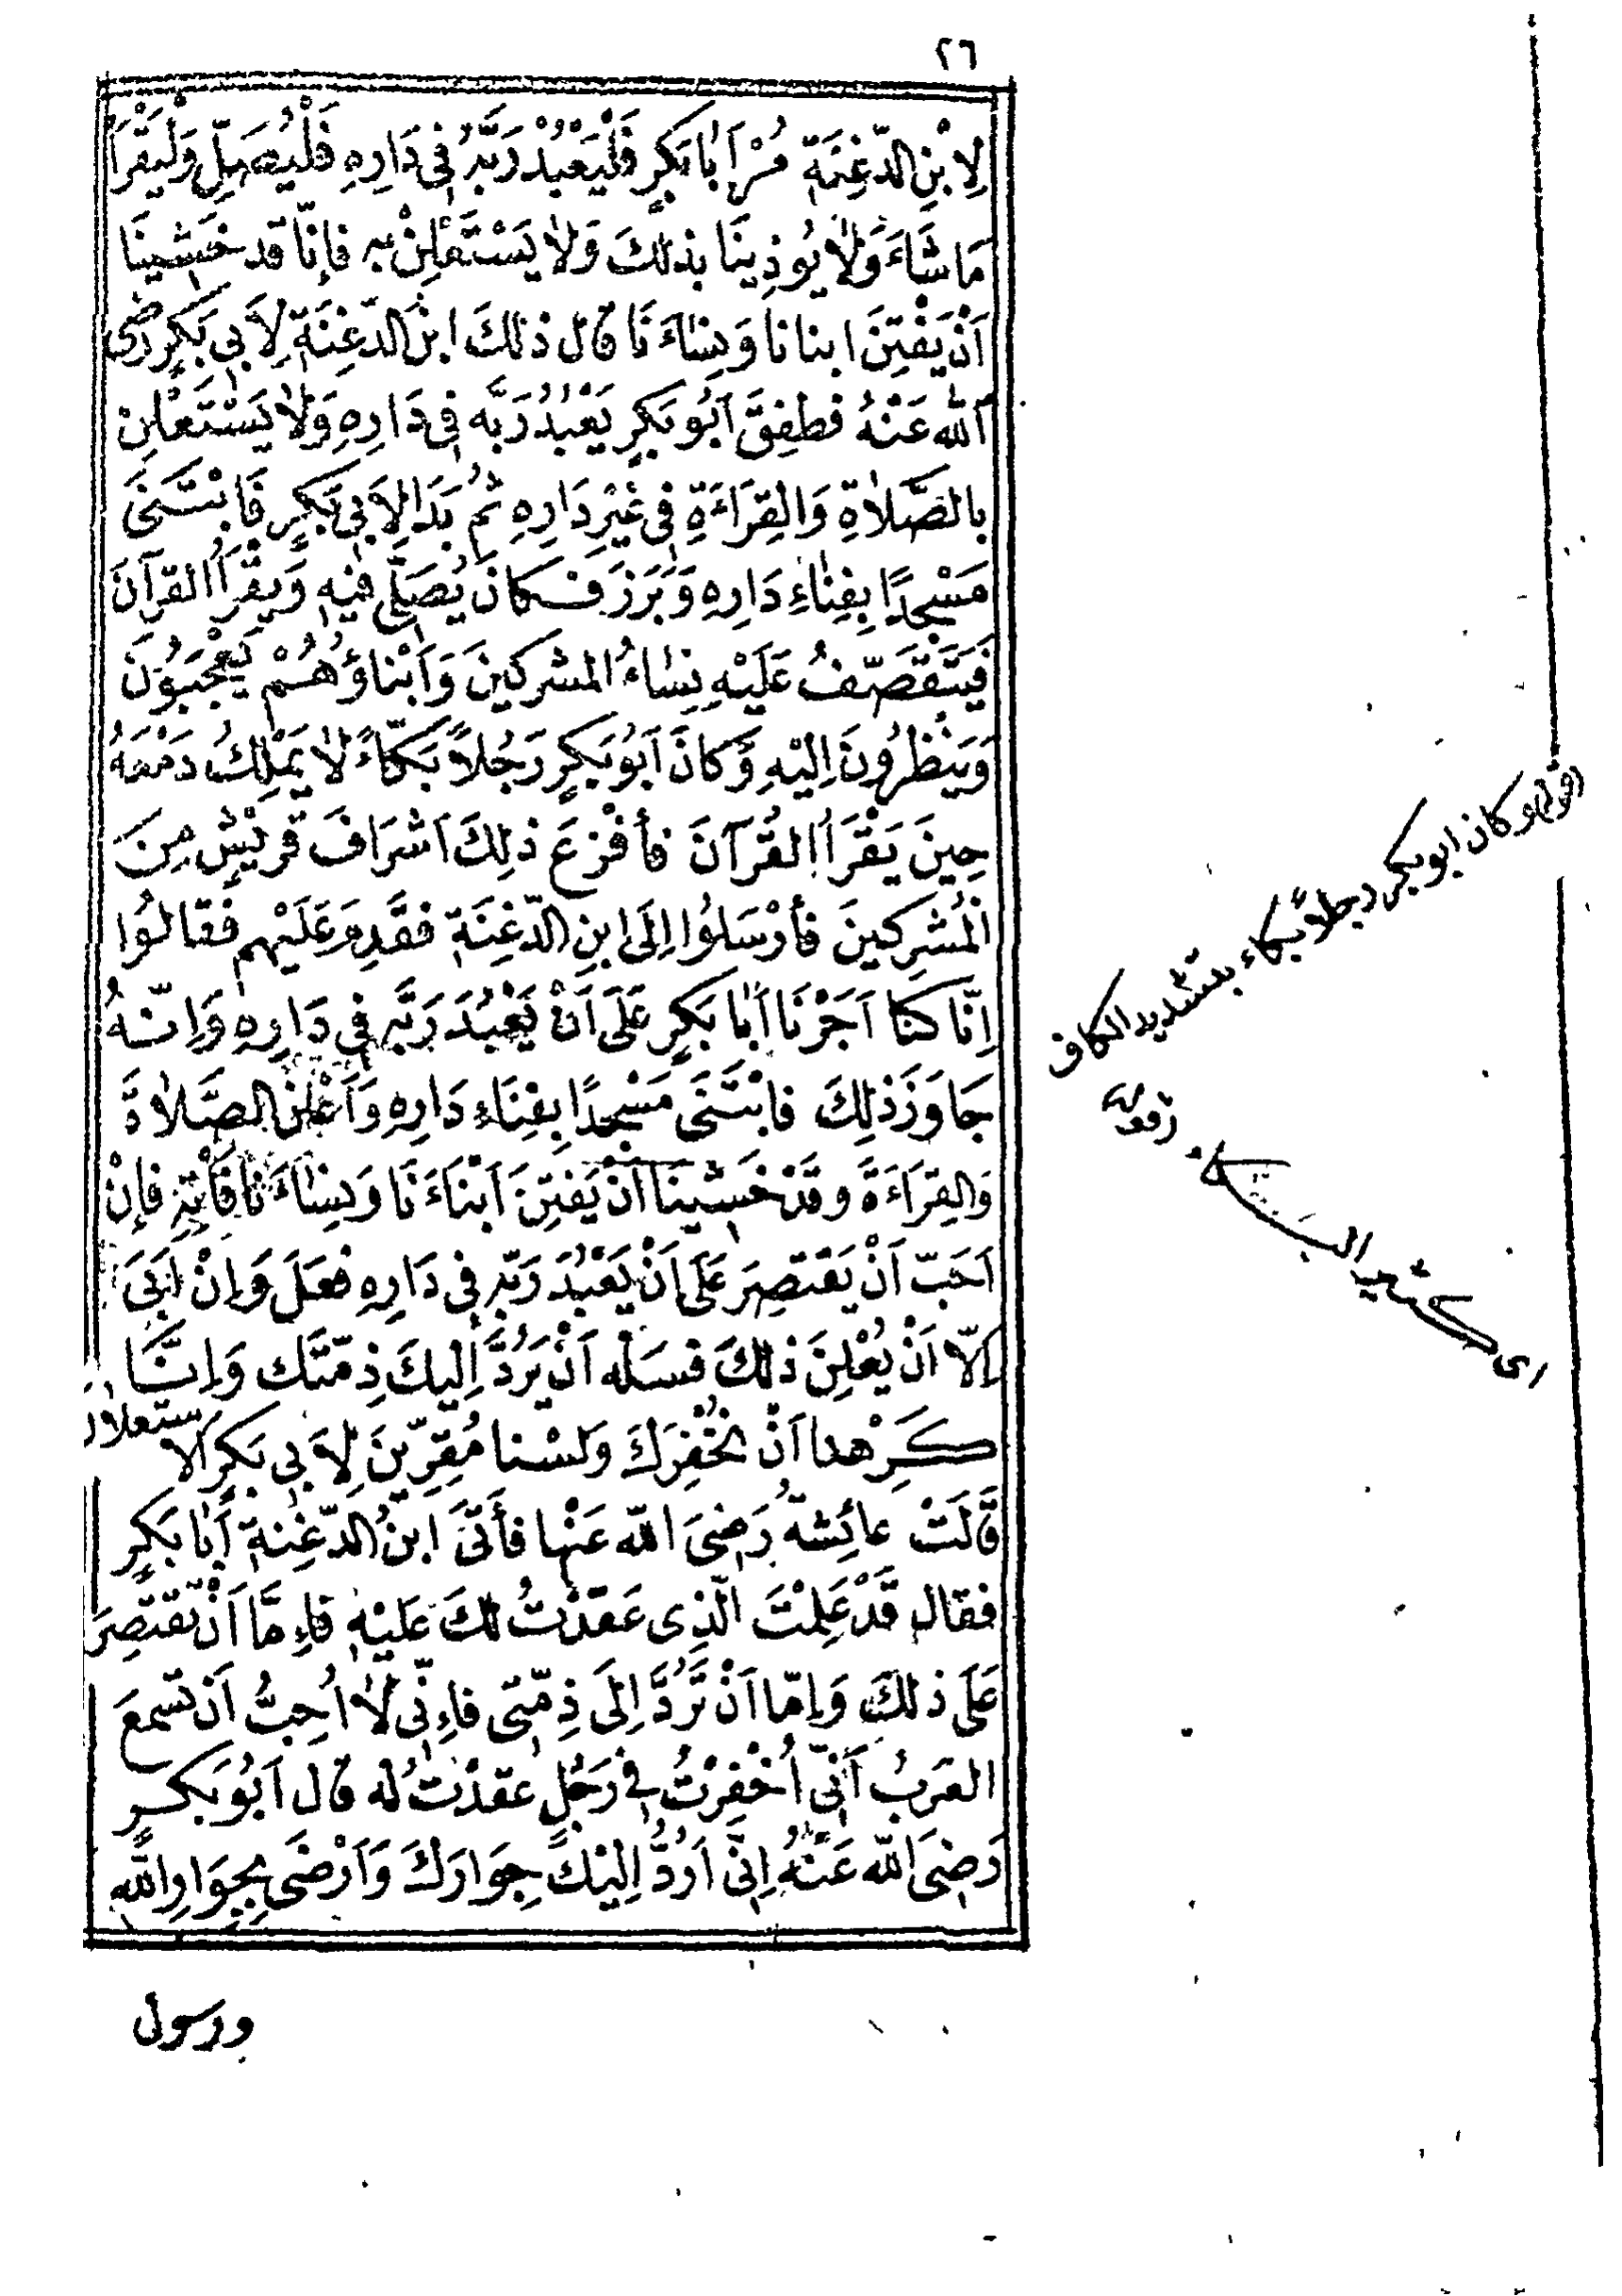 ٢٦
لِابْنِ الدَّغِنَةِ مُرْ اَبَا بَكرٍ فَلْيَعْبُدْ رَبَّهُ فِى دَارِهِ فَلْيُصَلِّ وَلْيَقْرَأْ
مَا شَاءَ وَلَا يُوذِينَا بذلكَ وَلَا يَسْتَعْلِنْ بِهِ فإنّا قد خَشِينَا
اَنْ يَفْتِنَ ابنانا وَنِسَاءَنَا قال ذلكَ ابْنُ الدَّغِنَةِ لِاَبِى بَكرٍ رَضى
اَللّٰه عَنْهُ فطفِقَ اَبُو بَكرٍ يَعْبُدُ رَبَّه فِى دَارِهِ وَلَا يَسْتَعْلِن
بالصَّلَاةِ وَالقِرَاءَةِ فِى غَيْرِ دَارِهِ ثمُ بَدَا لِاَبِى بَكرٍ فَابْتَنَى
مَسْجِدًا بِفِنَاءِ دَارِهِ وَبَرَزَ فكَانَ يُصَلِّى فيْهِ وَيَقْرَأُ القرآنَ
فَيَتَقَصَّفُ عَلَيْهِ نِسَاءُ المشركينَ وَاَبْناؤُهُمْ يَعْجَبُونَ
وَيَنْظُرُونَ اِليْهِ وَكَانَ اَبُو بَكرٍ رَجُلاً بَكّاءً لَا يَمْلِكُ دَمْعَهُ
حِينَ يَقْرَأُ القُرآنَ فأفْزعَ ذلِكَ اَشْرَافَ قرَيْشٍ مِنَ
المُشرِكينَ فأرْسَلوُا اِلَى ابنِ الدَّغِنَةِ فقَدِمَ عَلَيْهِم فَقالوُا
اِنّا كنّا اَجَرْنَا اَبَا بَكرٍ عَلَى اَنْ يَعْبُدَ رَبَّهُ فِى دَارِهِ وَاِنّهُ
جَاوَزَ ذلِكَ فابْتَنَى مَسْجِدًا بِفِنَاءِ دَارِهِ وَاَعْلَنَ الصَّلَاةَ
وَالقِرَاءَةَ وقَدْ خَشِينَا اَنْ يَفتِنَ اَبْنَاءَنَا وَنِسَاءَنَا فَاْتِهِ فإنْ
اَحَبّ اَنْ يَقتصِرَ عَلَى اَنْ يَعْبُدَ رَبّه فِى دَارِهِ فعَلَ وَاِنْ اَبَى
اِلّا اَنْ يُعْلِنَ ذلكَ فسَلْه اَنْ يَرُدَّ اِليكَ ذِمّتَك وَاِنَّا
كَرِهْنا اَنْ نُخْفِرَكَ وَلسْنا مُقِرِّينَ لِاَبِى بَكرٍ الاستعلان
قَالَتْ عائِشةُ رَضِىَ اللّٰه عَنْها فأَتَى ابنُ الدّغِنةِ أَبَا بَكرٍ
فقال قَدْ عَلِمْتَ الّذِى عَقدْتُ لكَ عَليْهِ فاِمَّا اَنْ تقتَصِرَ
عَلَى ذلكَ وَاِمّا اَنْ تَرُدَّ اِلَىَّ ذِمّتِى فاِنّى لَا اُحِبُّ اَن تسمعَ
العَرَبُ اَنِّى اُخْفِرْتُ فِى رَجُلٍ عَقدْتُ لهُ قال اَبُو بَكرٍ
رَضِىَ اللّٰه عَنْهُ اِنّى اَرُدُّ اِليْكَ جِوَارَكَ وَاَرْضَى بِجِوَارِ اللّٰه
ورسول
وكان ابو بكر رجلاً بكاء بتشديد الكاف
اى كثير البكاء